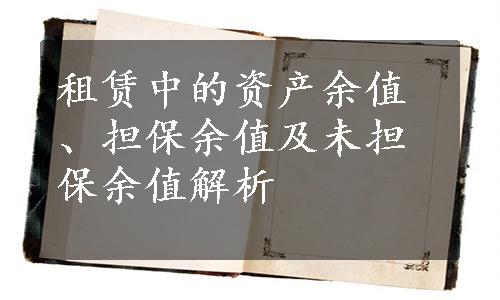 租赁中的资产余值
、担保余值及未担
保余值解析